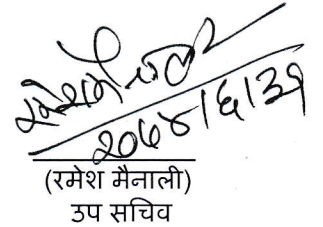 २०७४।६।३१
(रमेश मैनाली)
उप सचिव